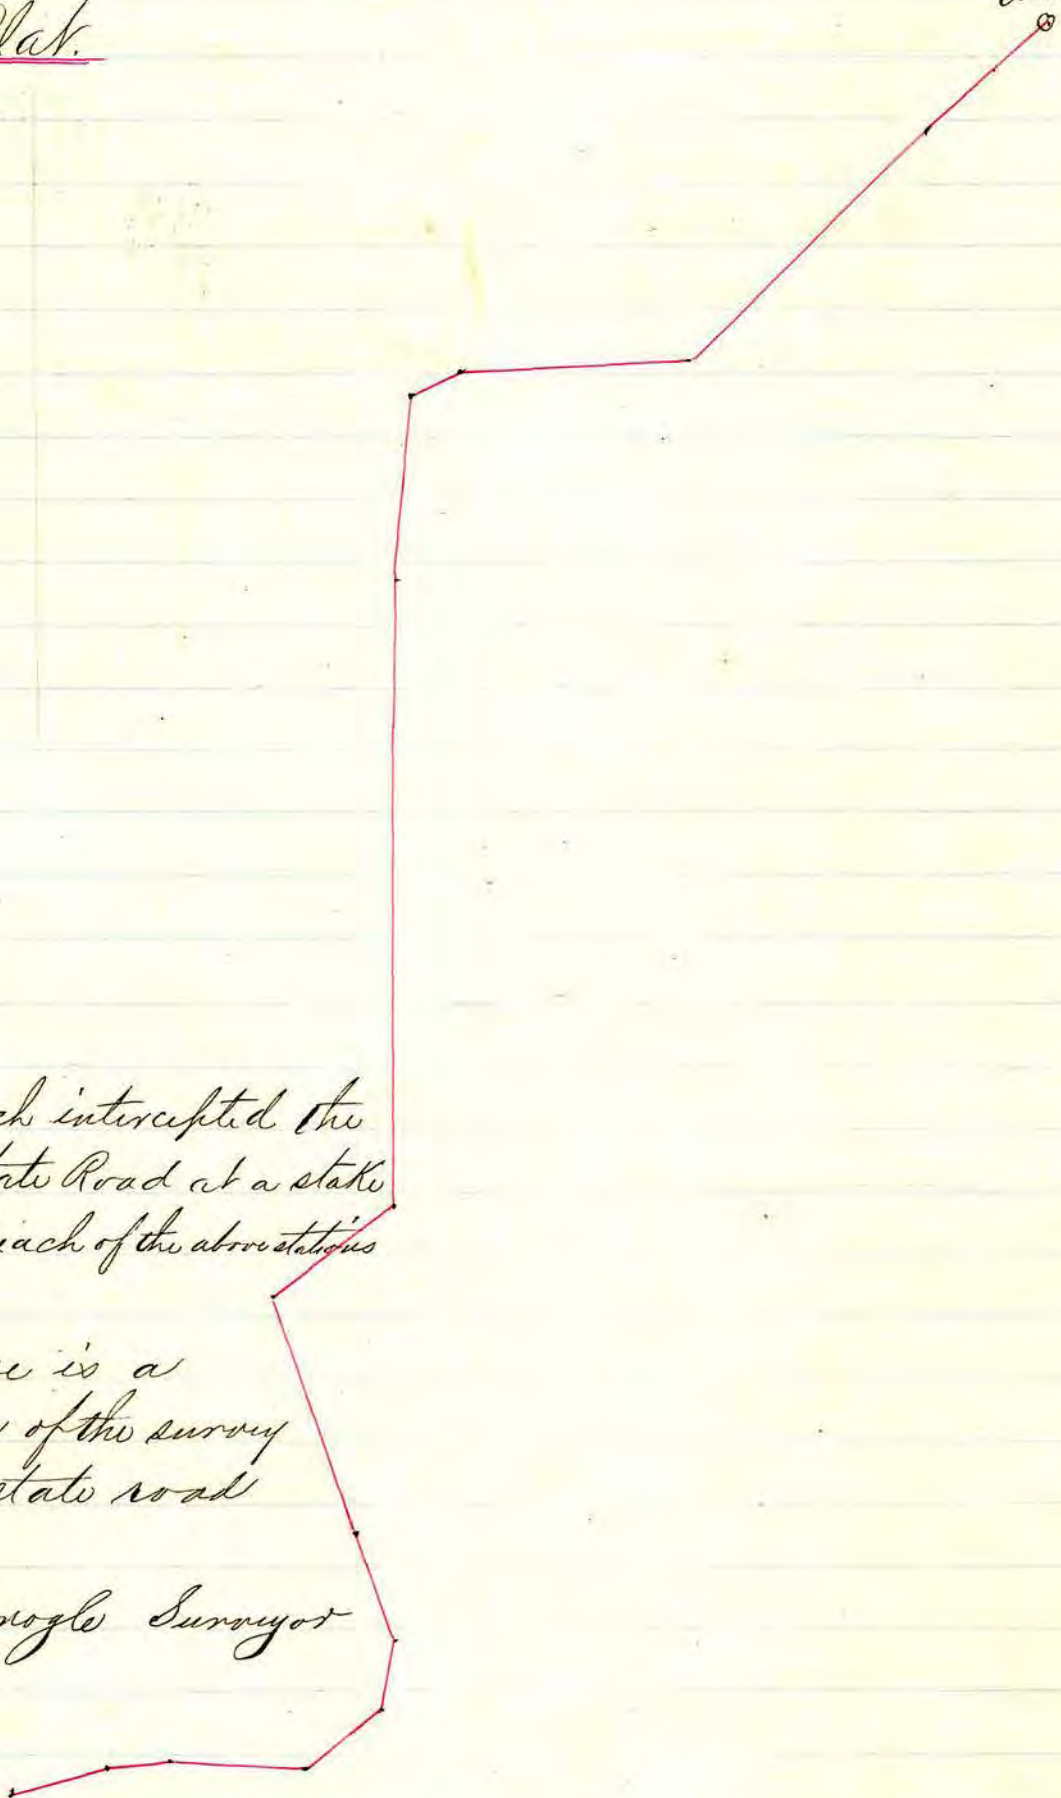 Plat.
intercepted the
Road at a stake
each of the above stations
is a
of the survey
state road
Surveyor